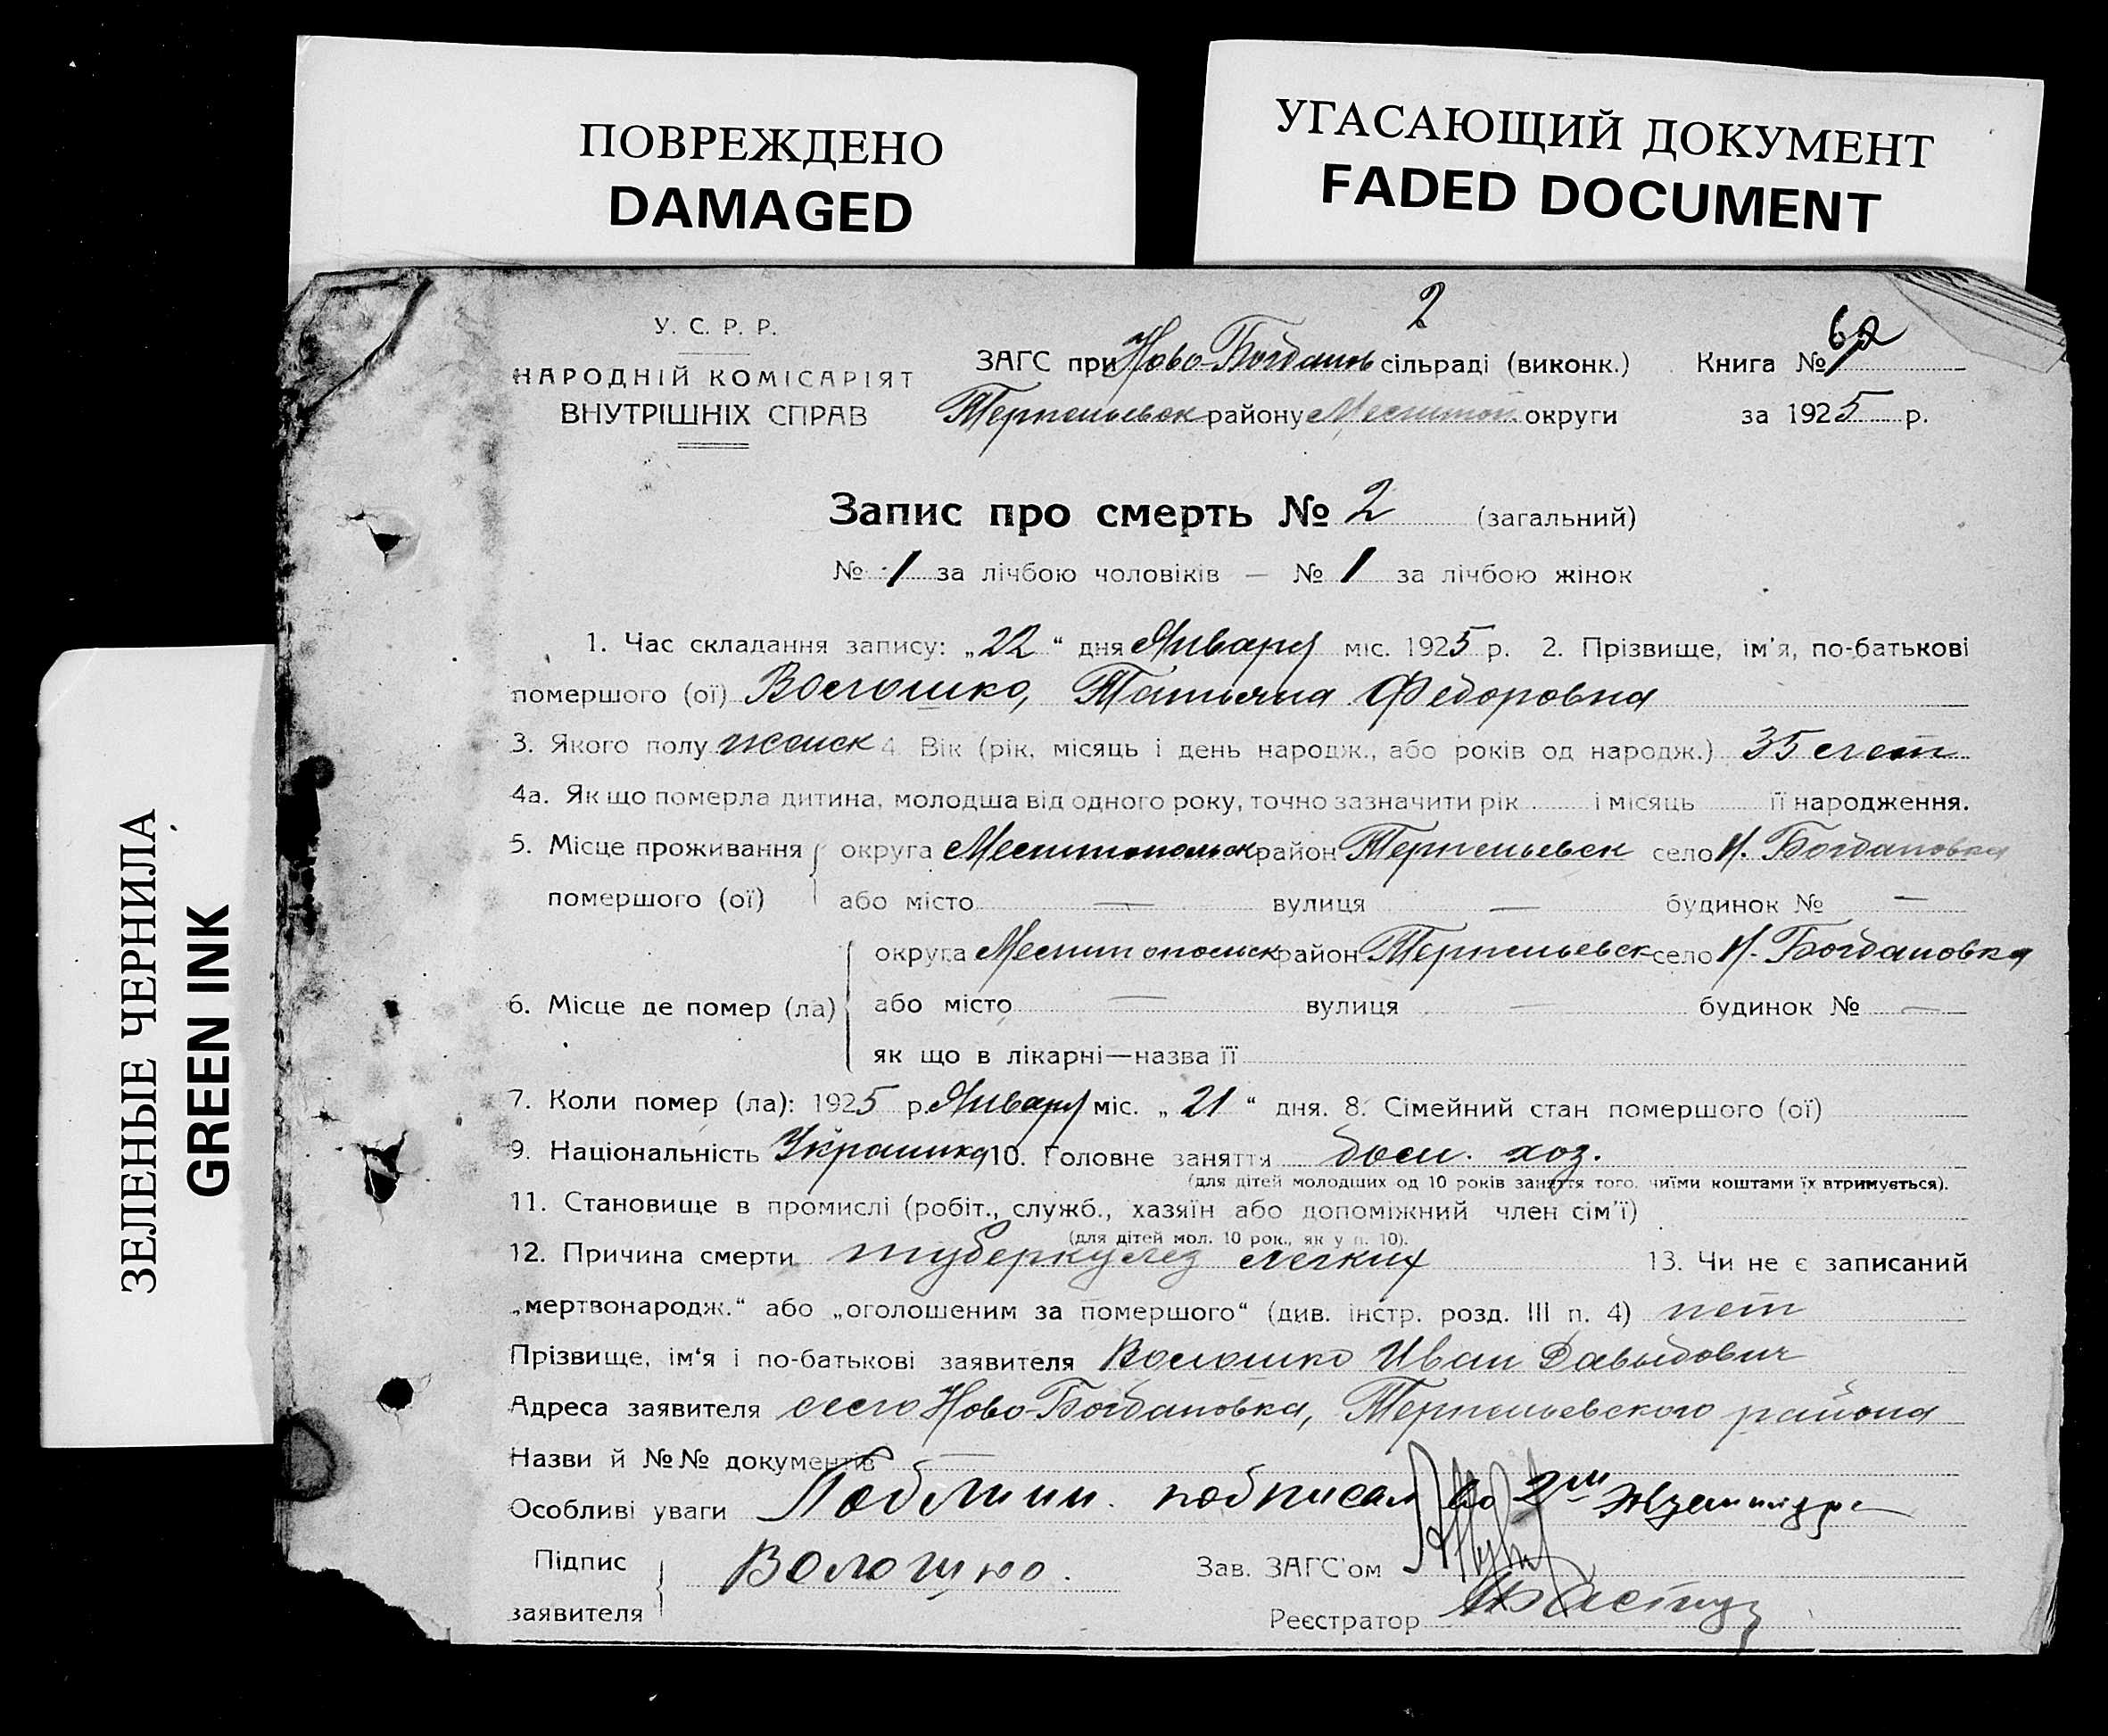 ПОВРЕЖДЕНО
DAMAGED
УГАСАЮЩИЙ ДОКУМЕНТ
FADED DOCUMENT
ЗЕЛЕНЫЕ ЧЕРНИЛА
GREEN INK
2
У. С. Р. Р.
НАРОДНІЙ КОМІСАРІЯТ
ВНУТРІШНІХ СПРАВ
ЗАГС при Ново-Богданов сільраді (виконк.)
Терпеньевск району Мелитоп. округи
62
Книга №
за 1925 р.
Запис про смерть № 2 (загальний)
№ 1 за лічбою чоловіків — № 1 за лічбою жінок
1. Час складання запису: „22“ дня Января міс. 1925 р. 2. Прізвище, ім'я, по-батькові
помершого (ої) Волошко, Татьяна Федоровна
3. Якого полу женск 4. Вік (рік, місяць і день народж., або років од народж.) 35 лет
4а. Як що померла дитина, молодша від одного року, точно зазначити рік і місяць її народження.
5. Місце проживання округа Мелитопольск район Терпеньевск село Н. Богдановка
помершого (ої) або місто — вулиця — будинок № —
округа Мелитопольск район Терпеньевск село Н. Богдановка
6. Місце де помер (ла) або місто — вулиця — будинок № —
як що в лікарні—назва її
7. Коли помер (ла): 1925 р. Января міс. „21“ дня. 8. Сімейний стан помершого (ої)
9. Національність Украинка 10. Головне заняття дом. хоз.
(для дітей молодших од 10 років заняття того, чиїми коштами їх втримується).
11. Становище в промислі (робіт., служб., хазяїн або допоміжний член сім'ї)
(для дітей мол. 10 рок., як у п. 10).
12. Причина смерти туберкулез легких 13. Чи не є записаний
„мертвонародж.“ або „оголошеним за помершого“ (див. інстр. розд. III п. 4) нет
Прізвище, ім'я і по-батькові заявителя Волошко Иван Давыдович
Адреса заявителя село Ново-Богдановка, Терпеньевского района
Назви й №№ документів —
Особливі уваги подписал во 2м
Підпис
заявителя Волошко.
Зав. ЗАГС'ом
Реєстратор